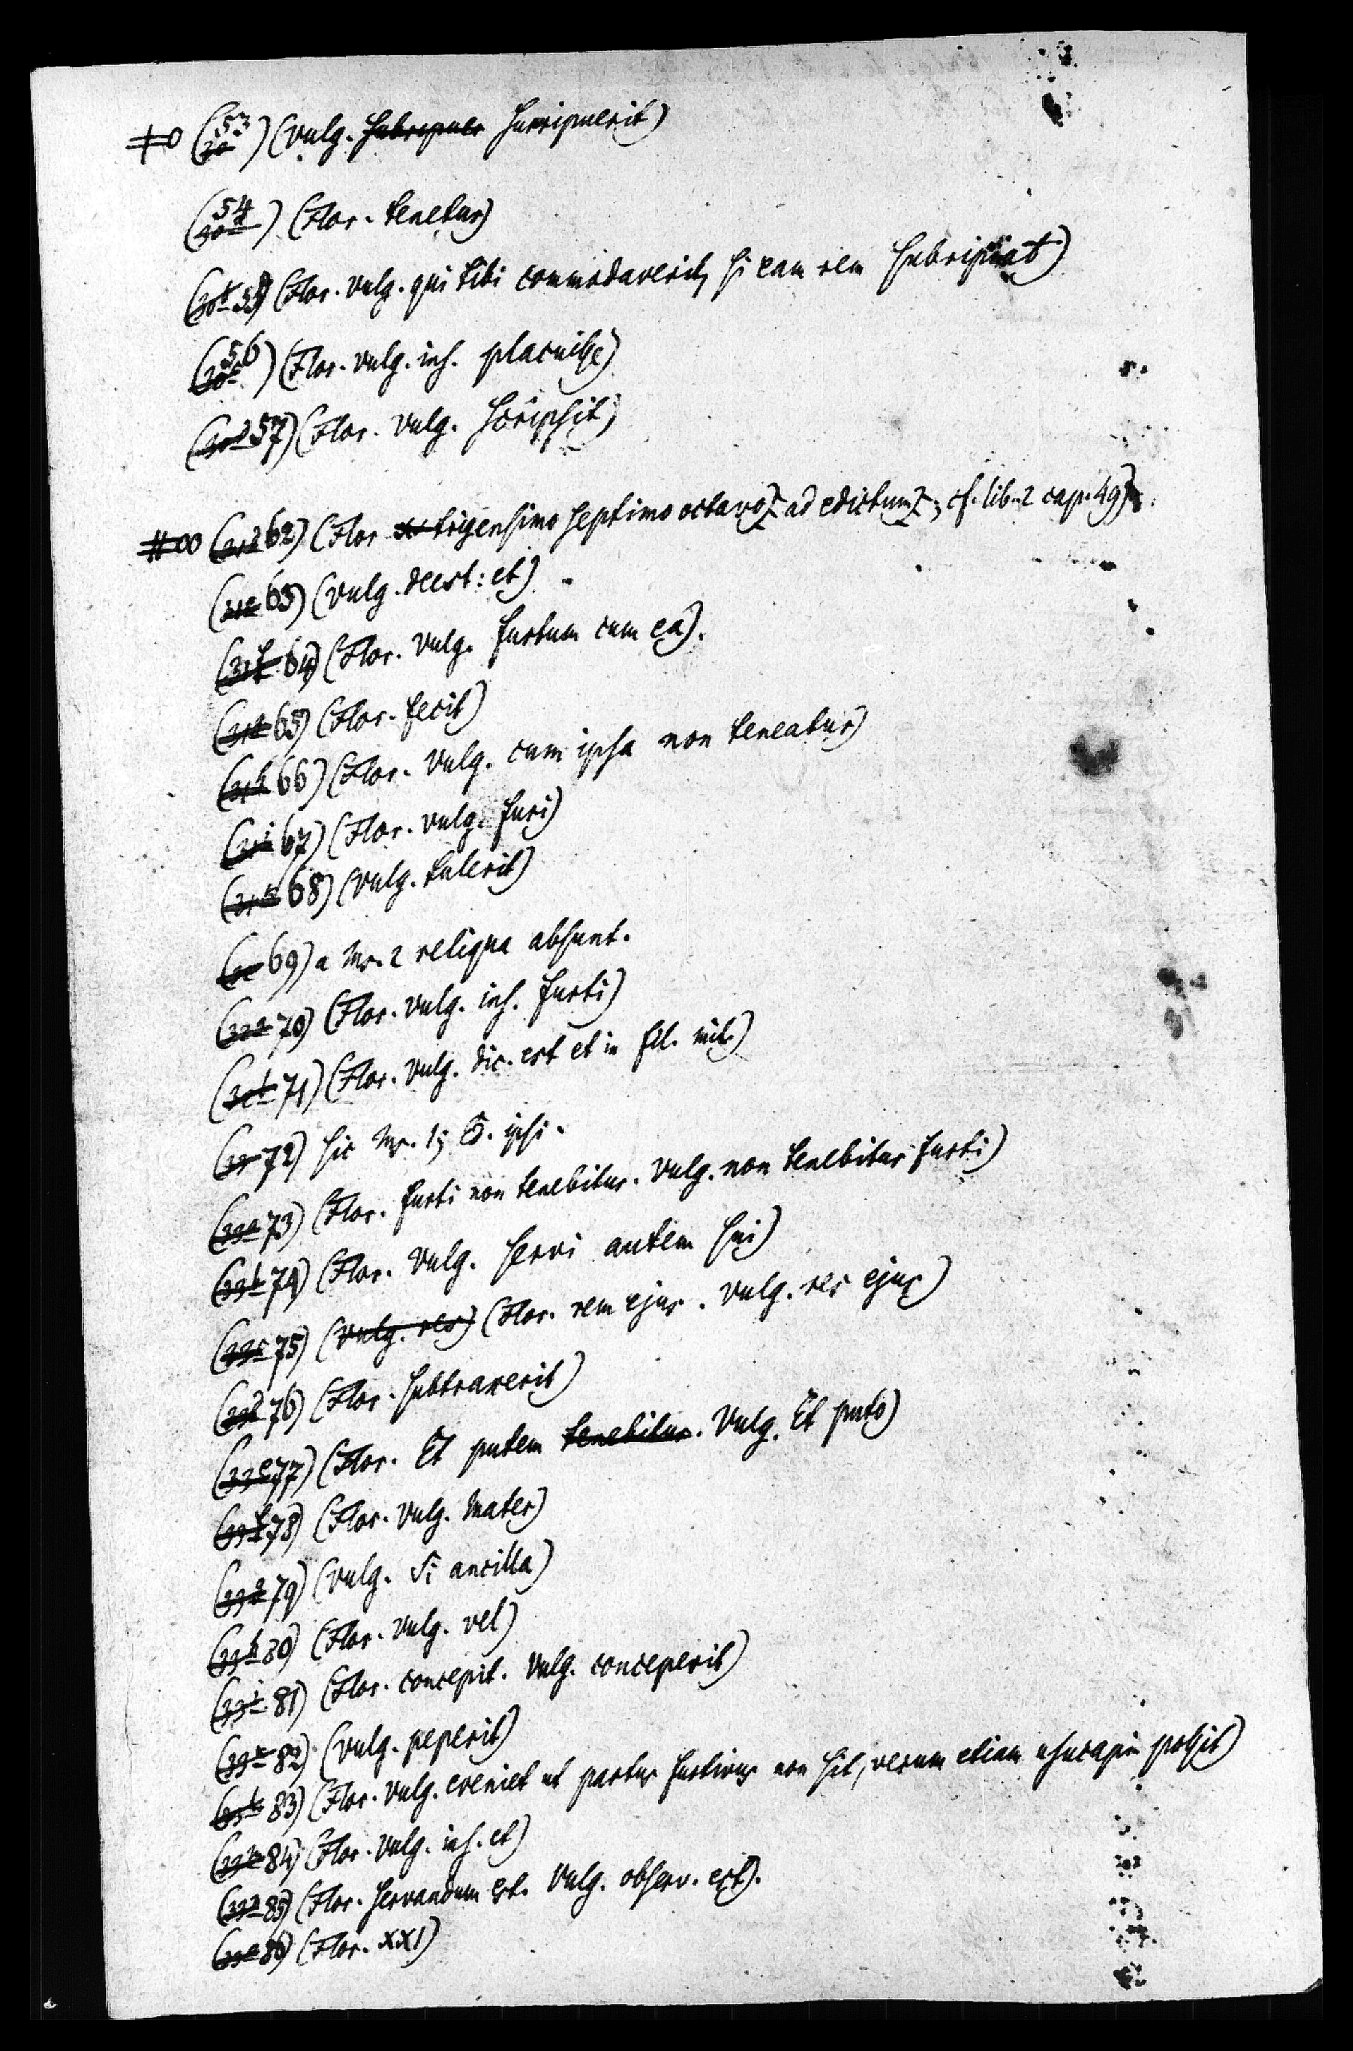 (53) (vulg. surripuerit)
(54) (Flor. tenetur)
(55) (Flor. vulg. qui tibi commodaverit, si eam rem subripiat)
(56) (Flor. vulg. ins. placuisse)
(57) (Flor. vulg. scripsit)
(62) (Flor trigensimo septimo octavo ad edictum; cf. lib. 2 cap. 49)
(63) (vulg. deest: et)
(64) (Flor. vulg. furtum cum ea).
(65) (Flor. fecit)
(66) (Flor. vulg. cum ipsa non teneatur)
(67) (Flor. vulg. furi)
(68) (vulg. tulerit)
(69) a Mr. 2 reliqua absunt.
(70) (Flor. vulg. ins. furti)
(71) (Flor. vulg. dic. est et in fil. mil.)
(72) sic Mr. 1; ipsi.
(73) (Flor. furti non tenebitur. Vulg. non tenebitur furti)
(74) (Flor. vulg. servi autem sui)
(75) (vulg. res) (Flor. rem ejus. Vulg. res ejus)
(76) (Flor. subtraxerit)
(77) (Flor. Et putem tenebitur. Vulg. Et puto)
(78) (Flor. vulg. mater)
(79) (vulg. Si ancilla)
(80) (Flor. vulg. vel)
(81) (Flor. concepit. Vulg. conceperit)
(82) (vulg. peperit)
(83) (Flor. vulg. eveniet ut partus furtivus non sit, verum etiam usucapi possit)
(84) (Flor. vulg. ins. et)
(85) (Flor. servandum est. Vulg. observ. est).
(86) (Flor. XXI)